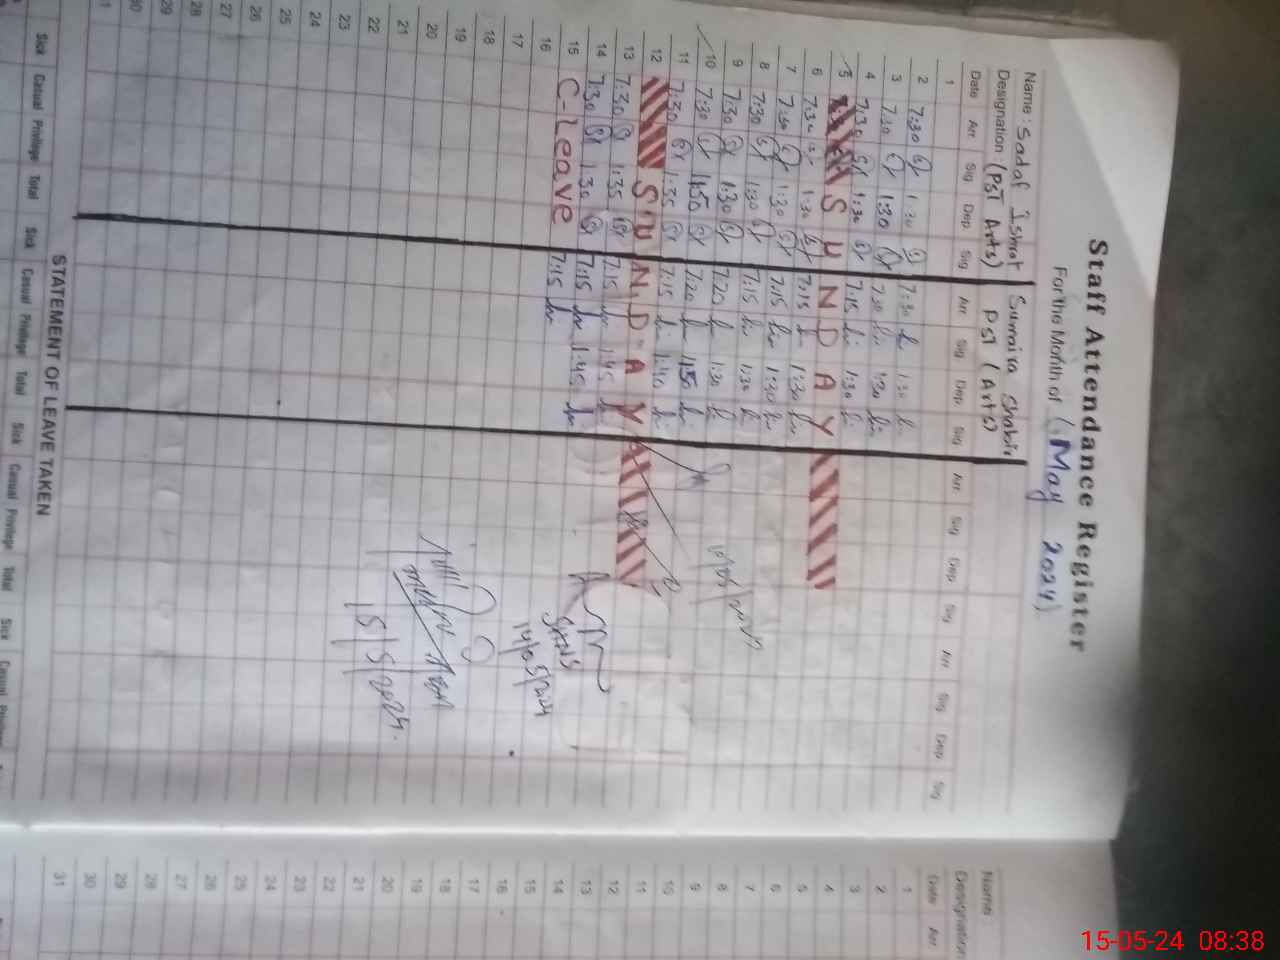 Staff Attendance Register
For the Month of (May 2024)
Name: Sadaf Ishrat Sumaira Shabir
Designation: (PST Arts) PST (Arts)
Date Arr. Sig Dep Sig Arr. Sig Dep Sig Arr. Sig Dep Sig Arr. Sig Dep Sig
1
2 7:30 1:30 7:30 1:30
3 7:30 1:30 7:30 1:30
4 7:30 1:30 7:15 1:30
5 SUNDAY
6 7:30 1:30 7:15 1:30
7 7:30 1:30 7:15 1:30
8 7:30 1:30 7:15 1:30
9 7:30 1:30 7:20 1:30
10 7:30 11:50 7:20 11:50
11 7:30 1:35 7:15 1:40
12 SUNDAY
13 7:30 1:35 7:15 1:45
14 7:30 1:30 7:15 1:45
15 C-Leave 7:15
16
17
18
19
20
21
22
23
24
25
26
27
28
29
30
31
14/05/2024
15/5/2024
STATEMENT OF LEAVE TAKEN
Sick Casual Privilege Total Sick Casual Privilege Total Sick Casual Privilege Total Sick Casual
Name:
Designation
Date Arr.
1
2
3
4
5
6
7
8
9
10
11
12
13
14
15
16
17
18
19
20
21
22
23
24
25
26
27
28
29
30
31
15-05-24 08:38